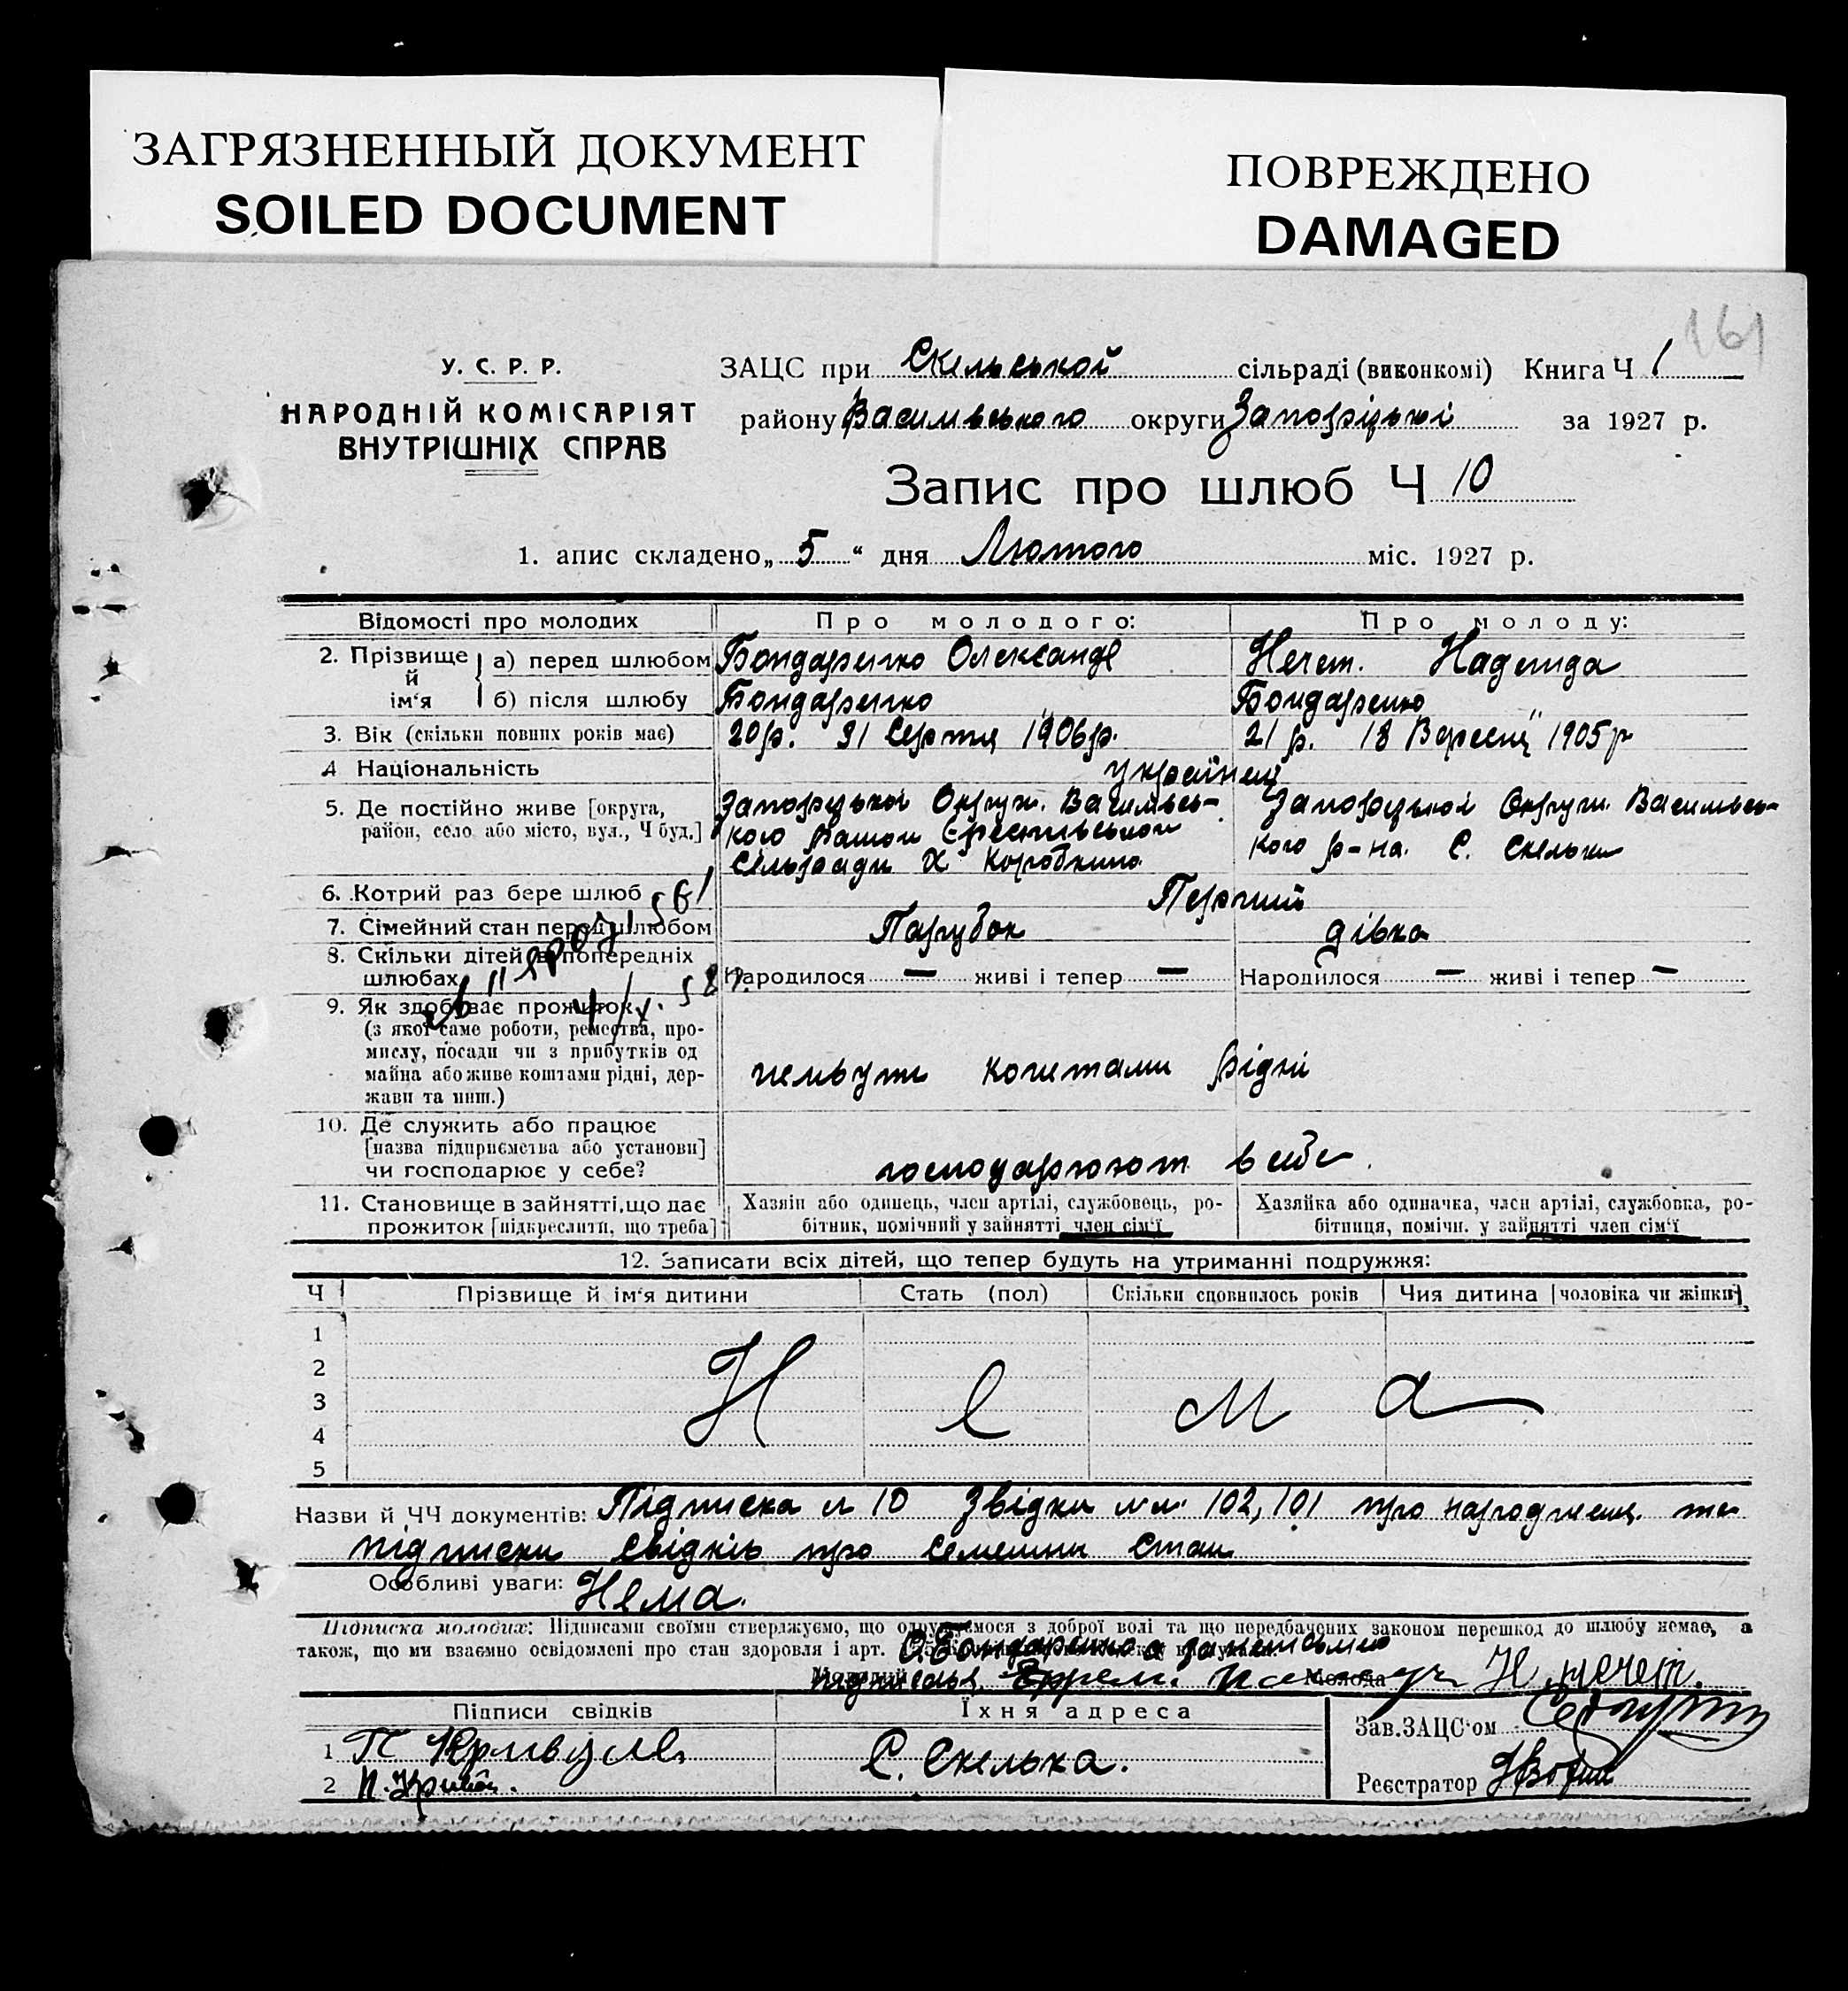 ЗАГРЯЗНЕННЫЙ ДОКУМЕНТ
SOILED DOCUMENT
ПОВРЕЖДЕНО
DAMAGED
161
У. С. Р. Р.
НАРОДНІЙ КОМІСАРІЯТ
ВНУТРІШНІХ СПРАВ
ЗАЦС при Скельської сільраді (виконкомі) Книга Ч 1
району Василівського округи Запоріцької за 1927 р.
Запис про шлюб Ч 10
1. апис складено „ 5 “ дня Лютого міс. 1927 р.
Відомості про молодих
Про молодого:
Про молоду:
2. Прізвище й ім‘я
а) перед шлюбом
Бондаренко Олександр
Нечет. Надежда
б) після шлюбу
Бондаренко
Бондаренко
3. Вік (скільки повних років має)
20 р. 31 Серпня 1906 р.
21 р. 18 Вересня 1905 р
4 Національність
українці
5. Де постійно живе [округа,
район, село або місто, вул., Ч буд.]
Запоріцької Округи. Василівсь-
кого
Сільради Х.
Запоріцької Округи. Василівсь-
кого р-на. С. Скельки
6. Котрий раз бере шлюб
Перший
7. Сімейний стан перед шлюбом
Парубок
дівка
8. Скільки дітей в попередніх
шлюбах
Народилося — живі і тепер —
Народилося — живі і тепер —
9. Як здобуває прожиток
(з якої саме роботи, ремества, про-
мислу, посади чи з прибутків од
майна або живе коштами рідні, дер-
жави та инш.)
живуть коштами рідні
10. Де служить або працює
[назва підприємства або установи]
чи господарює у себе?
господарюют в себе
11. Становище в зайнятті, що дає
прожиток [підкреслити, що треба]
Хазяїн або одинець, член артілі, службовець, ро-
бітник, помічний у зайнятті член сім‘ї
Хазяйка або одиначка, член артілі, службовка, ро-
бітниця, помічн. у зайнятті член сім‘ї
12. Записати всіх дітей, що тепер будуть на утриманні подружжя:
Ч
Прізвище й ім‘я дитини
Стать (пол)
Скільки сповнилось років
Чия дитина [чоловіка чи жінки]
1
2
3
4
5
Н е м а
Назви й ЧЧ документів: Підписка № 10 Звідки №№ 102, 101 про народження та
підписки свідків про семейни стан
Особливі уваги: Нема.
Підписка молодих: Підписами своїми стверджуємо, що одружуємося з доброї волі та що передбачених законом перешкод до шлюбу немає, а
також, що ми взаємно освідомлені про стан здоровля і арт.
О. Бондаренко а за неписьмен
Молодий
Молода Н. нечет.
Підписи свідків
Їхня адреса
1
2
С. Скелька.
Зав. ЗАЦС‘ом
Реєстратор